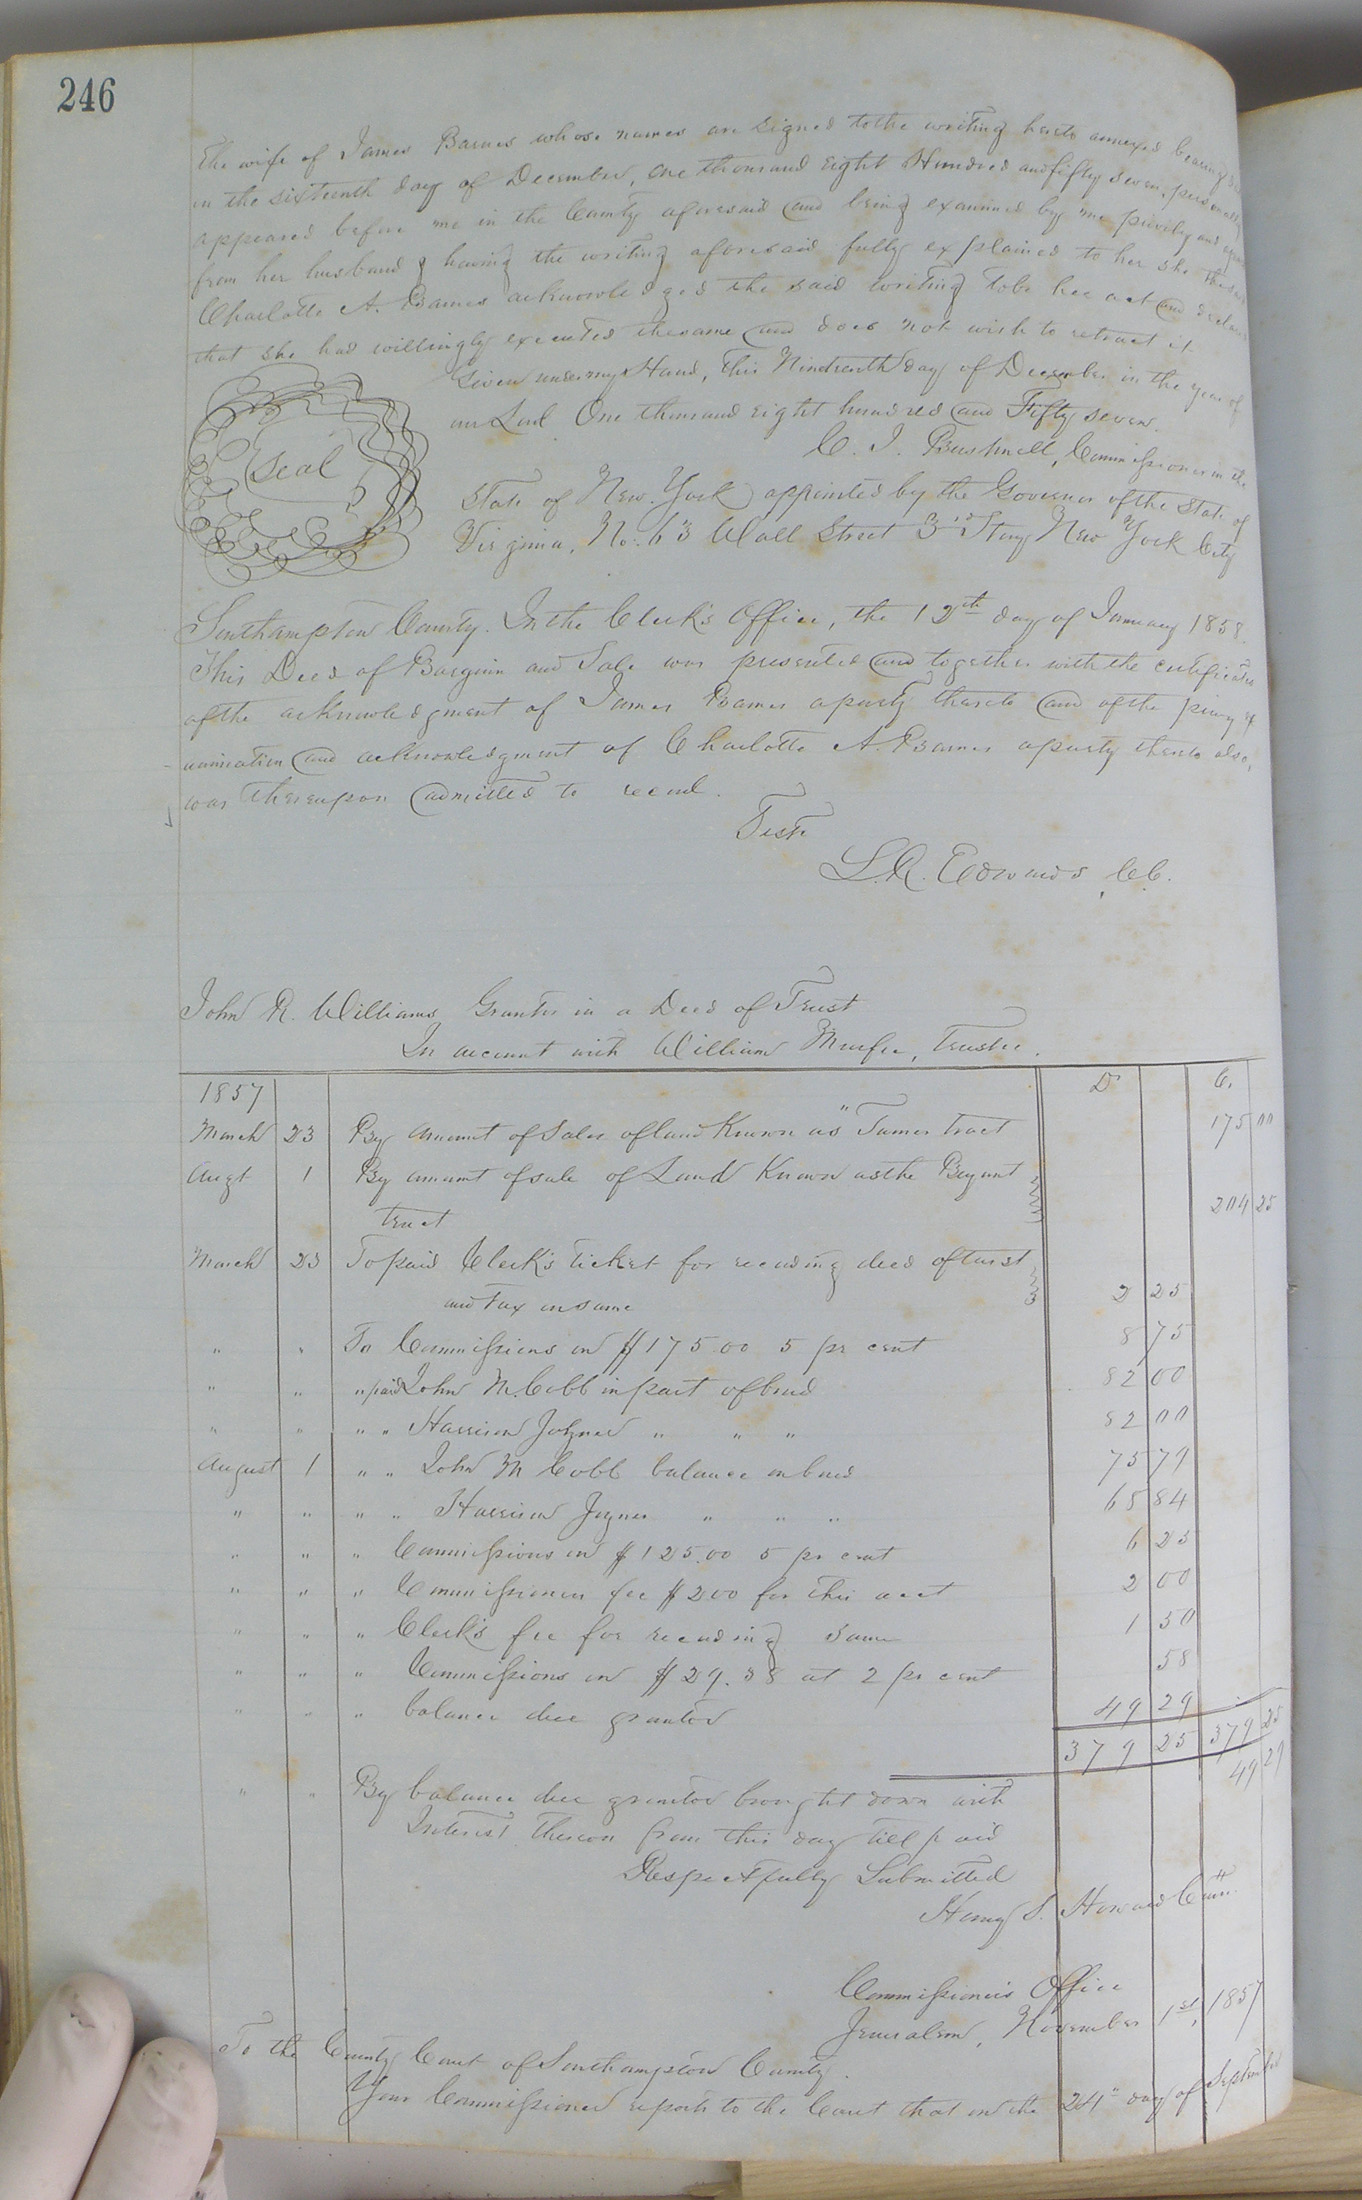 246
The wife of James Barnes whose names are signed to the writing hereto annexed bearing
on the sixteenth day of December, one thousand eight Hundred and fifty seven, personally
appeared before me in the County aforesaid and being examined by me privily and apart
from her husband & having the writing aforesaid fully explained to her she the said
Charlotte A. Barnes acknowledged the said writing to be her act and declared
that she had willingly executed the same and does not wish to retract it.
Given under my Hand, this Nindteenth day of December in the year of
our Lord One thousand eight hundred and Fifty seven.
Seal
C. I. Bushnell, Commissioner in the
State of New York appointed by the Governor of the State of
Virginia, No. 63 Wall Street 3rd Story New York City
Southampton County. In the Clerk's Office, the 12th day of January 1858.
This Deed of Bargain and Sale was presented and together with the certificates
of the acknowledgment of James Barnes a party thereto and of the privy ex
amination and acknowledgment of Charlotte A. Barnes a party thereto also,
was thereupon admitted to record.
Teste
L. R. Edwards, C.C.
John R. Williams Grantor in a Deed of Trust
In account with William Murfee, Trustee.
1857 D C.
March 23 By amount of Sales of land Known as "Turner tract 175 00
Augt 1 By amount of sale of Land Known as the Bryant
tract 204 25
March 23 To paid Clerk's ticket for recording deed of trust
and Tax on same 2 25
" " To Commissions on $175.00 5 pr cent 8 75
" " " paid John M. Cobb in part of bond 82 00
" " " " Harrison Joyner " " " 82 00
August 1 " " John M Cobb balance on bond 75 79
" " " " Harrison Joyner " " " 68 84
" " " Commissions on $125.00 5 pr cent 6 25
" " " Commissioners fee $2.00 for this acct 2 00
" " " Clerk's fee for recording same 1 50
" " " Commissions on $29.38 at 2 pr cent 58
" " " balance due grantor 49 29
379 25 379 25
" " By balance due grantor brought down with 49 29
Interest thereon from this day till paid
Respectfully Submitted
Henry S. Howard Comr.
Commissioner's Office
Jerusalem, November 1st, 1857
To the County Court of Southampton County.
Your Commissioner reports to the Court that on the 24th day of September